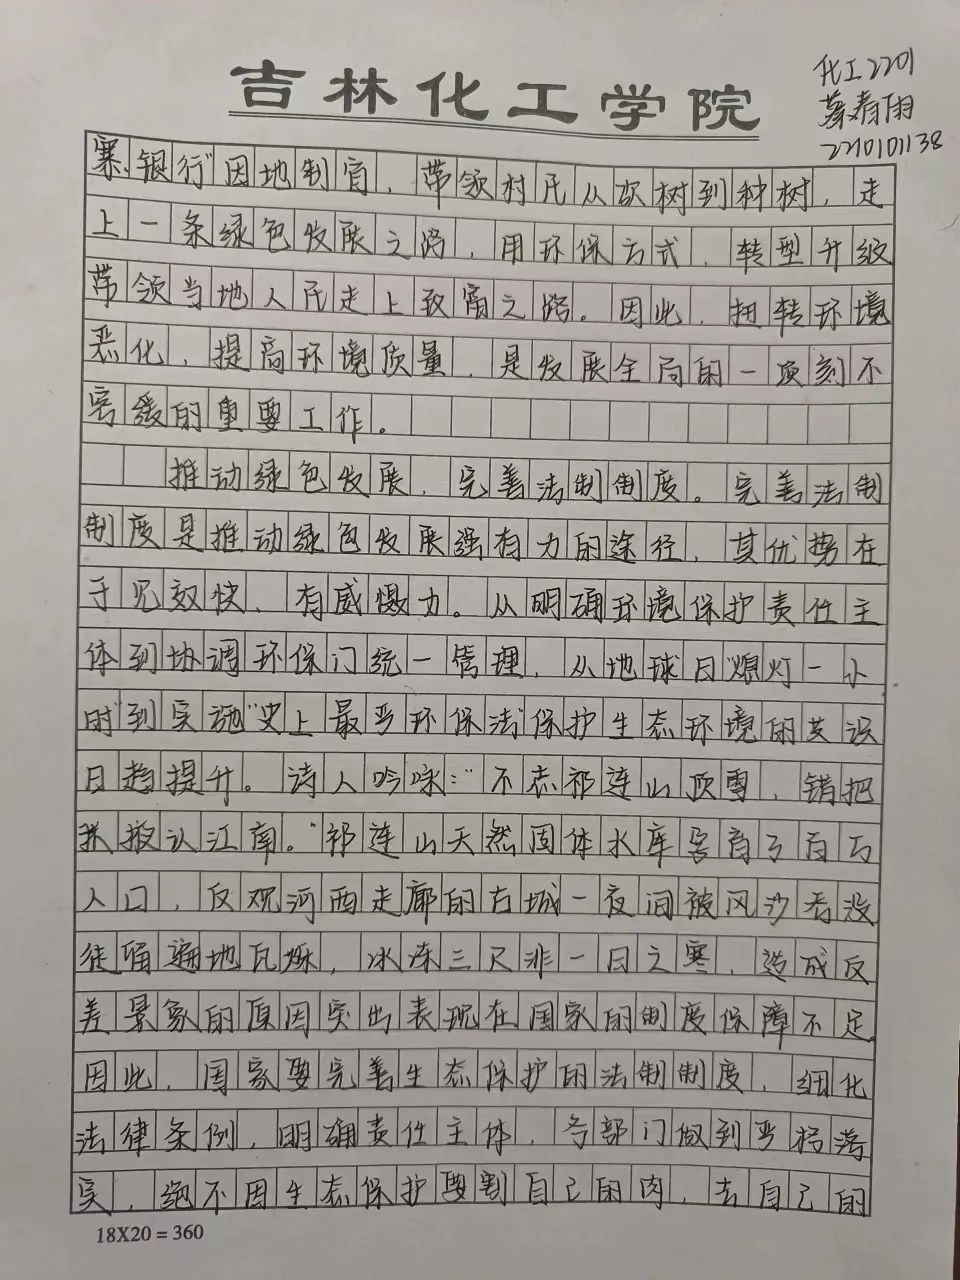 吉林化工学院
化工2201
蔡春雨
2210101138
寨"银行"因地制宜，带领村民从砍树到种树，走
上一条绿色发展之路，用环保方式，转型升级
带领当地人民走上致富之路。因此，扭转环境
恶化，提高环境质量，是发展全局的一项刻不
容缓的重要工作。
推动绿色发展，完善法制制度。完善法制
制度是推动绿色发展强有力的途径，其优势在
于见效快、有威慑力。从明确环境保护责任主
体到协调环保门统一管理，从地球日"熄灯一小
时"到实施"史上最严环保法"保护生态环境的共识
日趋提升。诗人吟咏："不恋祁连山顶雪，错把
张掖认江南。"祁连山天然固体水库容育了百万
人口，反观河西走廊的古城一夜间被风沙吞没
徒留遍地瓦烁，冰冻三尺非一日之寒，造成反
差景象的原因突出表现在国家的制度保障不足
因此，国家要完善生态保护的法制制度，细化
法律条例，明确责任主体，各部门做到严格落
实，绝不因生态保护要割自己的肉，去自己的
18X20=360